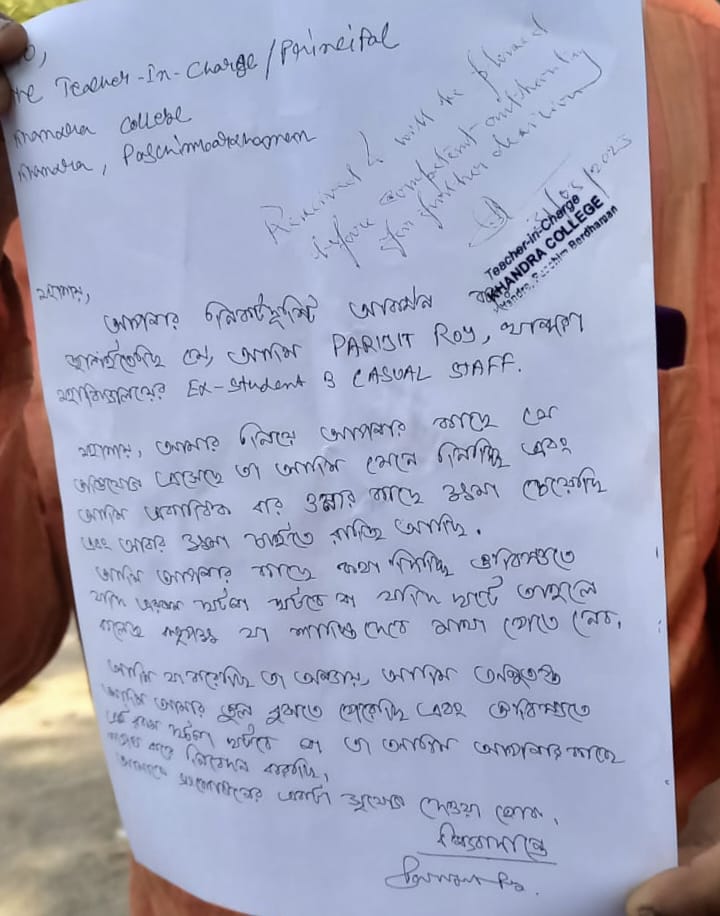 To,
The Teacher-In-Charge/Principal
Khandra College
Khandra, Paschimbardhaman
Received & will be placed
before competent authority
for further decision
/2023
Teacher-in-Charge
KHANDRA COLLEGE
Khandra, Paschim Bardhaman
মহাশয়,
আপনার নিকট আমি আবেদন
জানাইতেছি যে, আমি PARIJIT Roy, খান্দরা
মহাবিদ্যালয়ের Ex-student ও CASUAL STAFF.
মহাশয়, আমার নিয়ে আপনার কাছে যে
অভিযোগ এসেছে তা আমি মেনে নিচ্ছি এবং
আমি একাধিক বার ওনার কাছে ক্ষমা চেয়েছি
এবং আবার ক্ষমা চাইতে রাজি আছি।
আমি আপনার কাছে কথা দিচ্ছি ভবিষ্যতে
যদি এরকম ঘটনা ঘটবে না যদি ঘটে তাহলে
কলেজ কতৃপক্ষ যা শাস্তি দেবে মাথা পেতে নেব।
আমি যা করেছি তা অন্যায়, আমি অনুতপ্ত
আমি আমার ভুল বুঝতে পেরেছি এবং ভবিষ্যতে
এই রকম ঘটনা ঘটবে না তা আমি আপনার কাছে
করে নিবেদন করছি,
আমাকে সংশোধনের একটা সুযোগ দেওয়া হোক।
ধন্যবাদান্তে